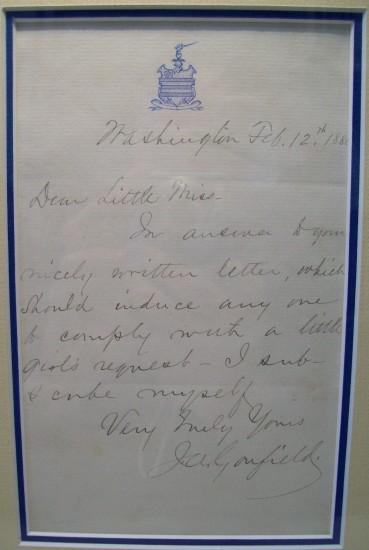 Washington Feb. 12.th 188
Dear Little Miss-
In answer to your
nicely written letter, which
should induce any one
to comply with a little
girl's request - I sub-
scribe myself
Very Truly Yours
J.A. Garfield.